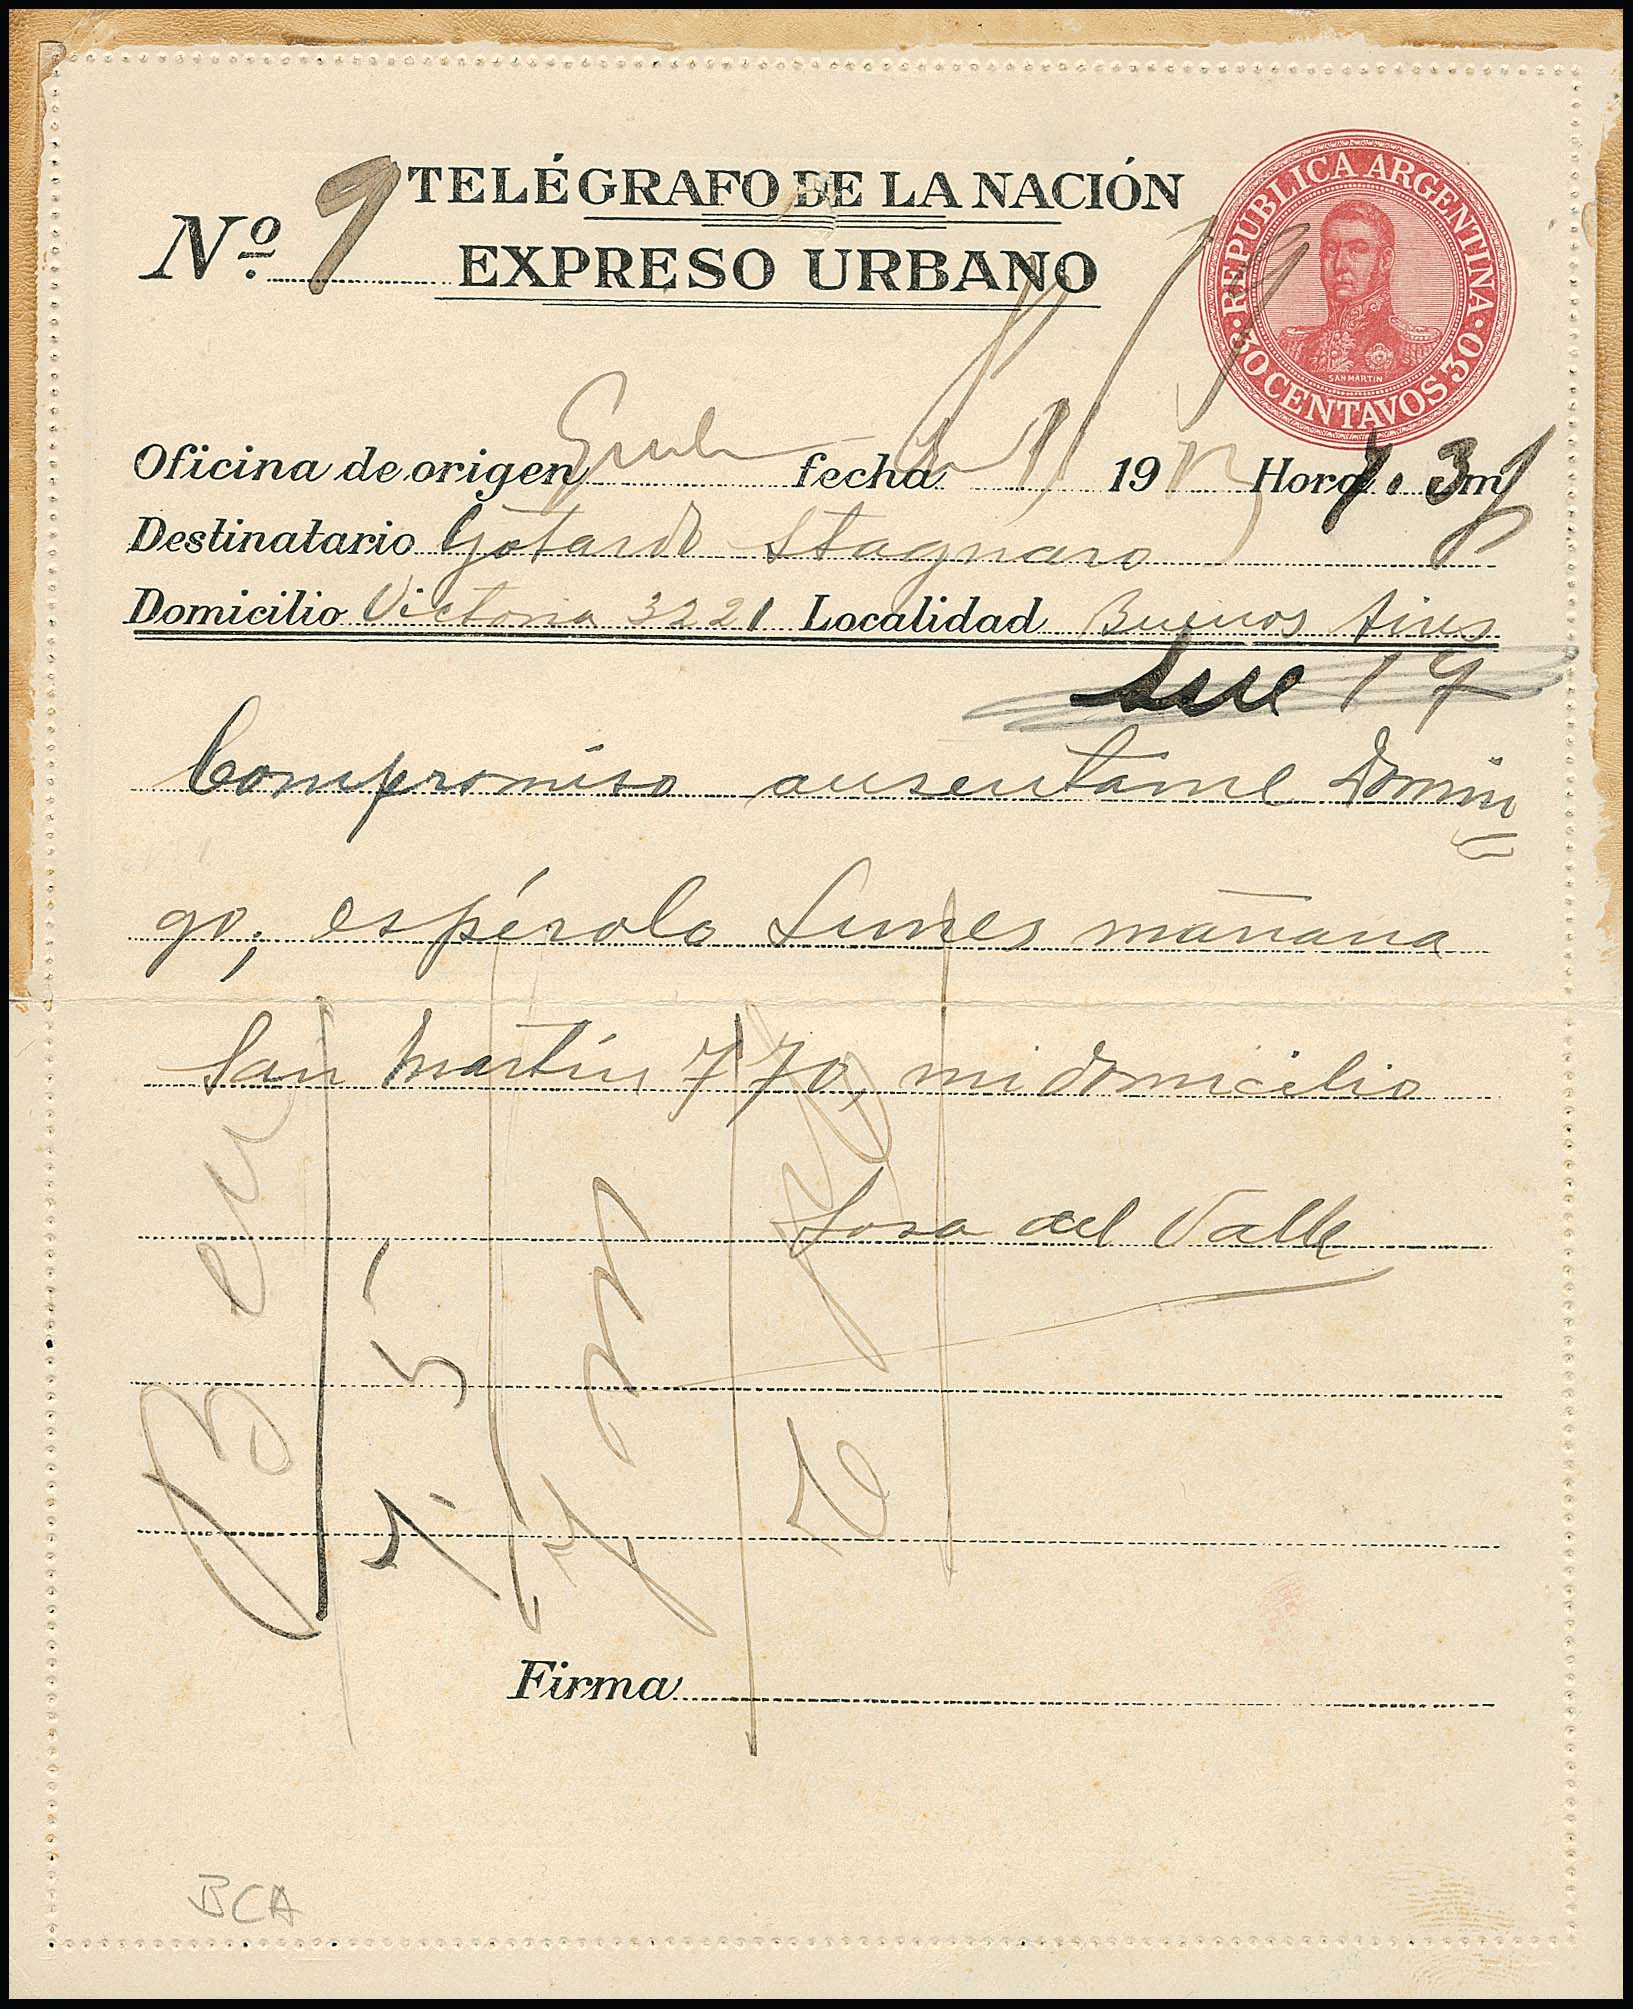 TELÉGRAFO DE LA NACIÓN
Nº 9
EXPRESO URBANO
REPUBLICA ARGENTINA
SAN MARTIN
30 CENTAVOS 30
Oficina de origen fecha 19 Hora m
Destinatario Gotardo Stagnaro
Domicilio Victoria 3221 Localidad Buenos Aires
17
Compromiso ausentáme Domin
go; espérolo Lunes mañana
San Martín 770, mi domicilio
Sosa del Valle
Firma
BCA